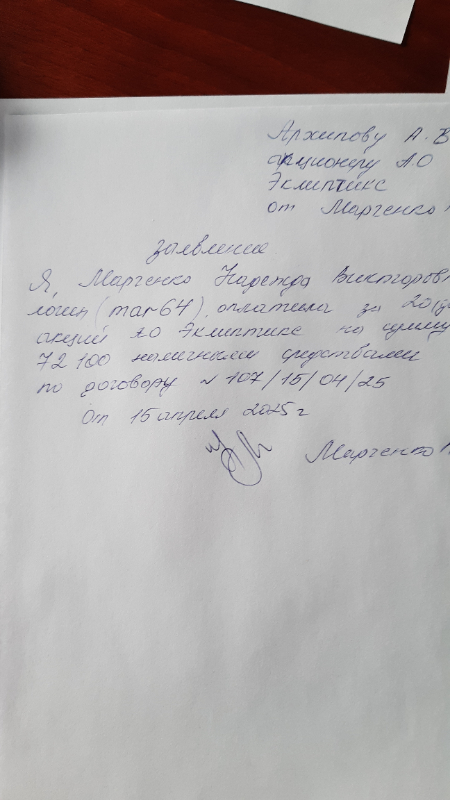 Архипову А. В
акционеру АО
Эклиптикс
от Марченко
заявление.
Я, Марченко Надежда Викторовн
логин (mar64), оплатила за 20 (дв
акций АО Эклиптикс на сумму
72 100 наличными средствами
по договору № 107/15/04/25
От 15 апреля 2025 г
Марченко Н